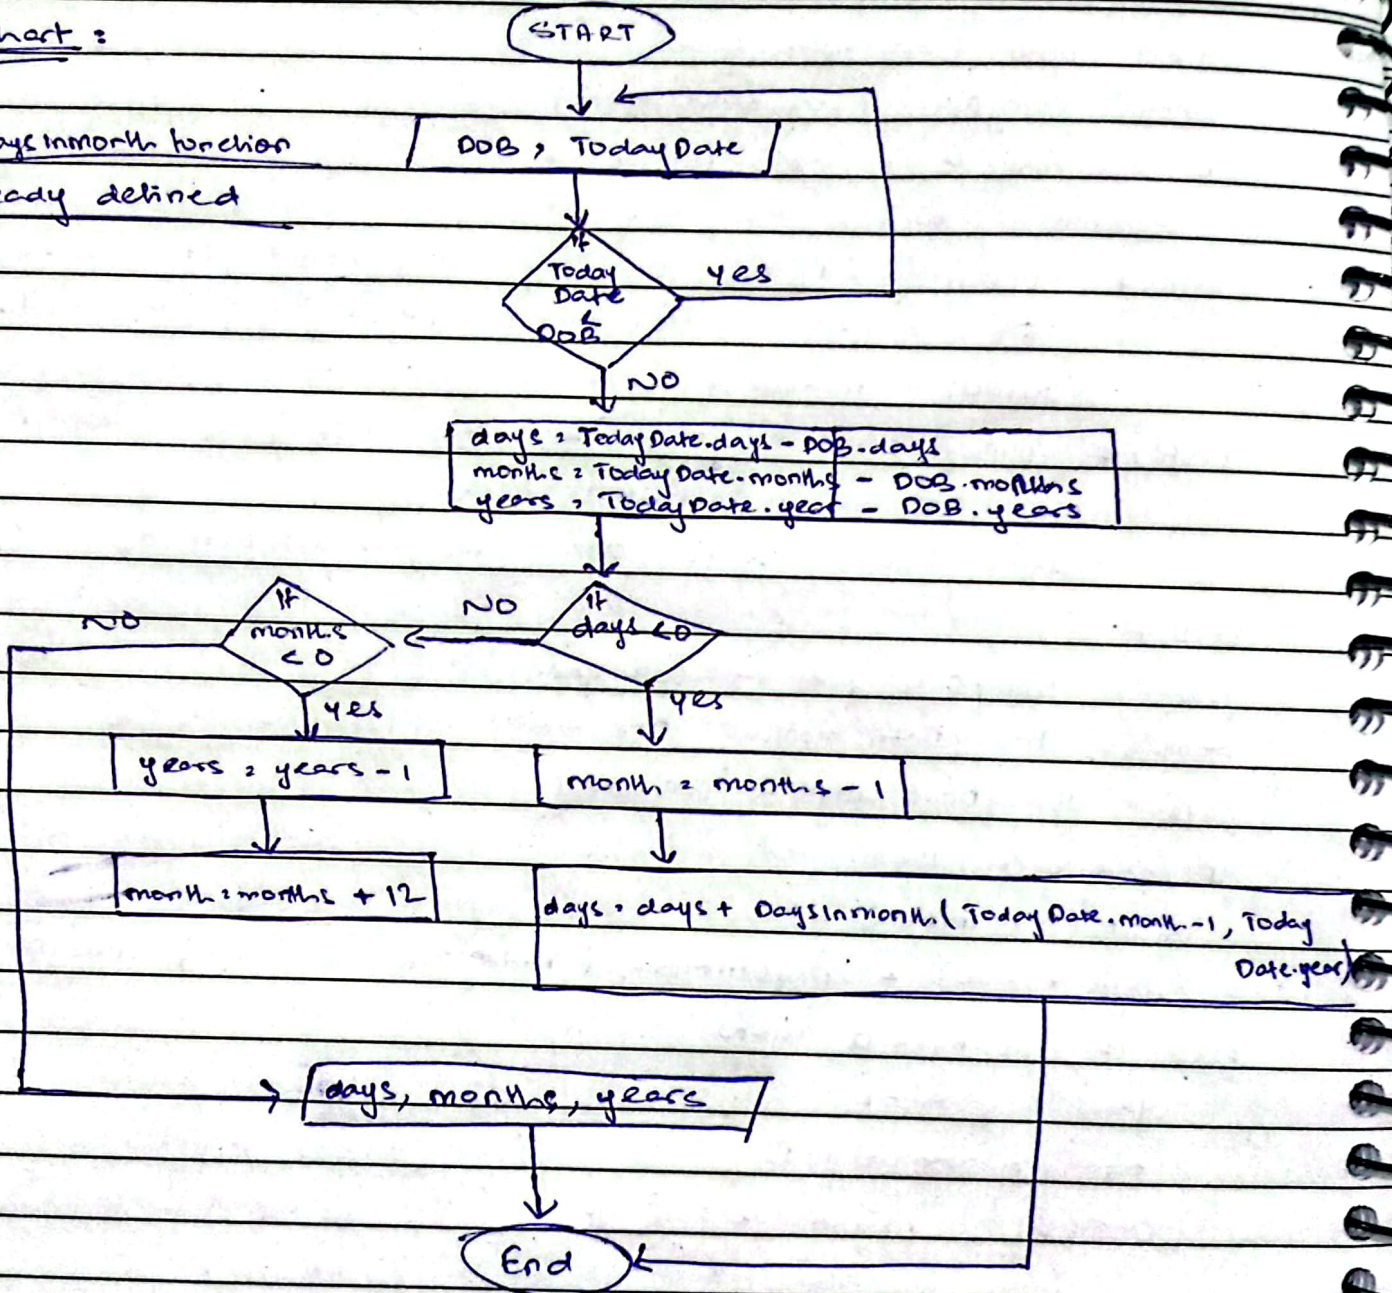 hart :
START
aysInmonth function
DOB, TodayDate
eady defined
If
Today
Date
<
DOB
yes
NO
days = TodayDate.days - DOB.days
months = TodayDate.months - DOB.months
years = TodayDate.year - DOB.years
If
months
< 0
NO
NO
If
days < 0
yes
yes
years = years - 1
month = months - 1
month = months + 12
days = days + DaysInmonth(TodayDate.month-1, Today
Date.year)
days, months, years
End